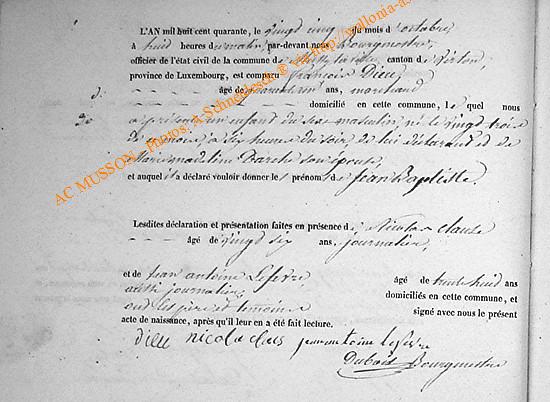 L'AN mil huit cent quarante, le vingt cinq du mois d'octobre
à huit heures du matin, par-devant nous Bourgmestre,
officier de l'état civil de la commune de canton de Virton,
province de Luxembourg, est comparu françois Dieu
âgé de ans, marchand
domicilié en cette commune, lequel nous
a présenté un enfant du sexe masculin né le vingt trois
de ce mois à six heures du soir de lui déclarant et de
son épouse,
et auquel il a déclaré vouloir donner le prénom de Jean Baptiste.
Lesdites déclaration et présentation faites en présence de Nicolas clause
âgé de vingt six ans, journalier,
et de jean antoine Lefevre, âgé de trente huit ans
aussi journalier, domiciliés en cette commune, et
ont les père et témoins signé avec nous le présent
acte de naissance, après qu'il leur en a été fait lecture.
dieu nicola clus jean antoine lefevre
Dubois Bourgmestre
AC MUSSON - Photos, A. Schneckes® via http://wallonia-as